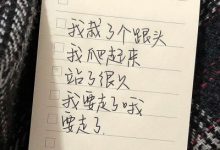 我栽了个跟头
我爬起来
站了很久
我要走了哦
要走了.